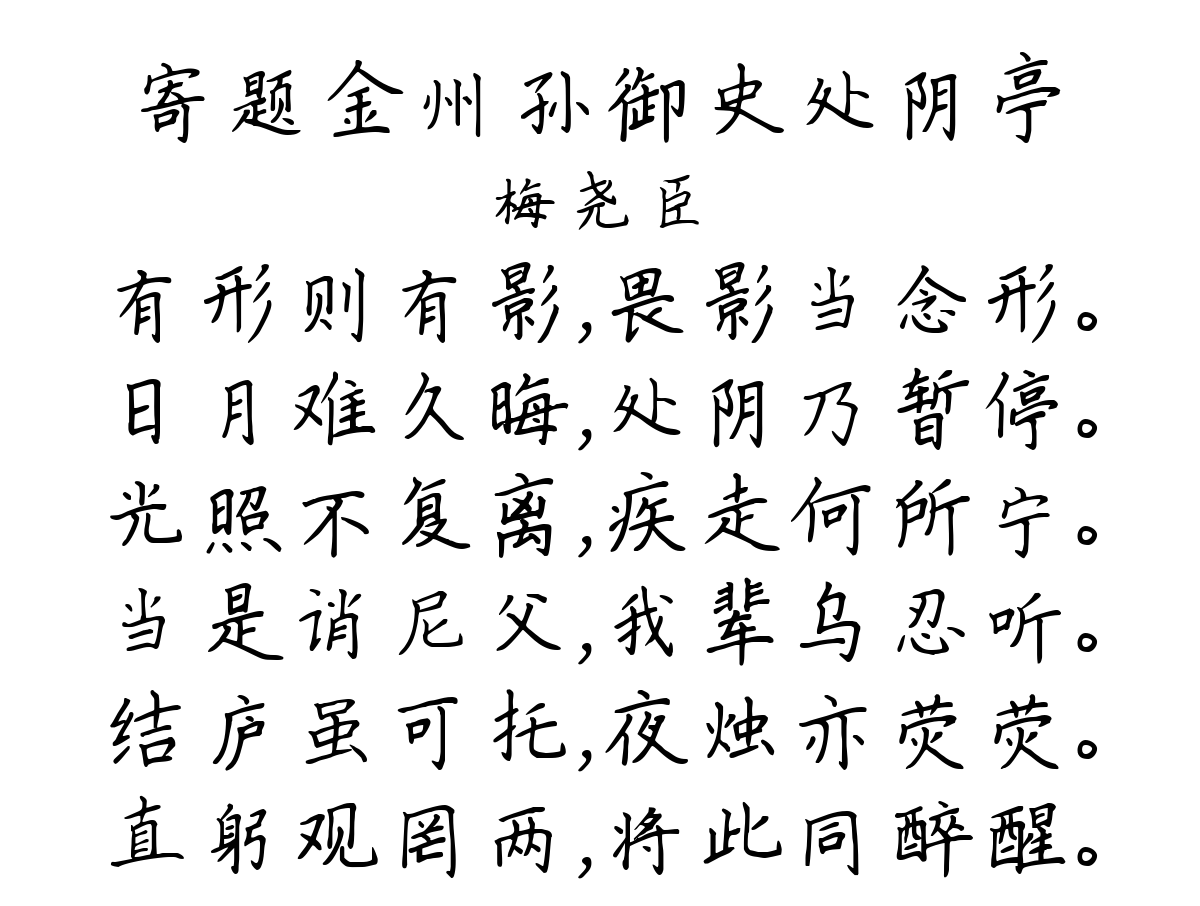 寄题金州孙御史处阴亭
梅尧臣
有形则有影,畏影当念形。
日月难久晦,处阴乃暂停。
光照不复离,疾走何所宁。
当是诮尼父,我辈乌忍听。
结庐虽可托,夜烛亦荧荧。
直躬观罔两,将此同醉醒。